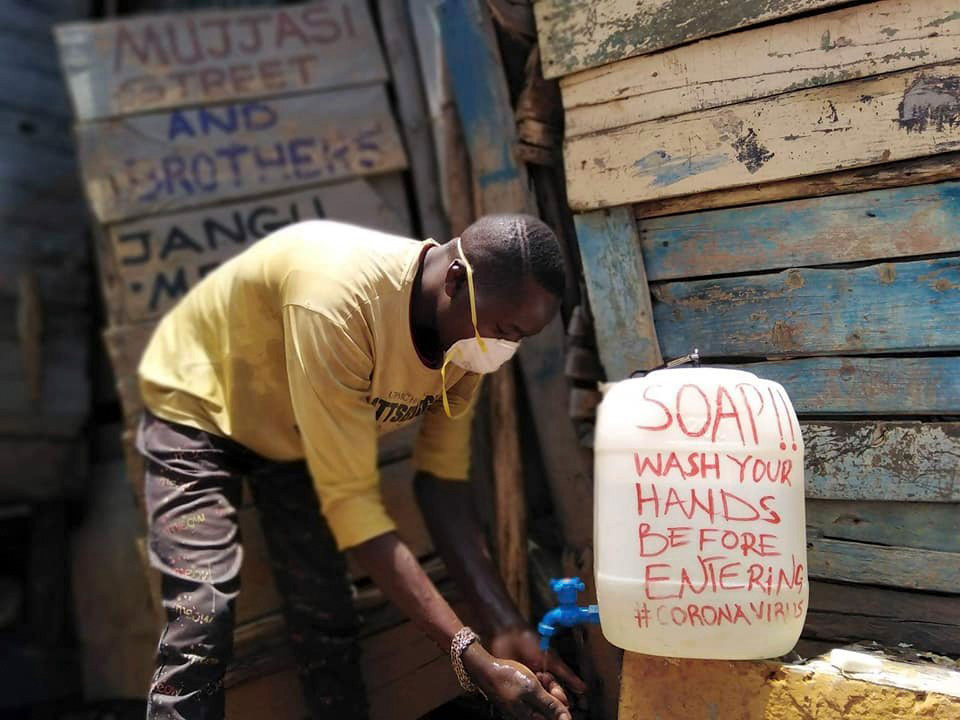 MUJJASI
STREET
AND
BROTHERS
JANGU
SOAP!!
WASH YOUR
HANDS
BEFORE
ENTERING
#CORONAVIRUS